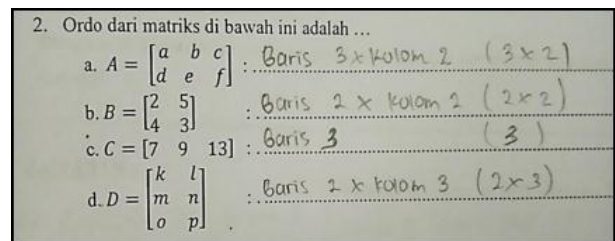 2. Ordo dari matriks di bawah ini adalah ...
a. A = [a b c
d e f] : Baris 3 x kolom 2 (3 x 2)
b. B = [2 5
4 3] : Baris 2 x kolom 2 (2 x 2)
c. C = [7 9 13] : Baris 3 (3)
d. D = [k l
m n
o p] : Baris 2 x kolom 3 (2 x 3)